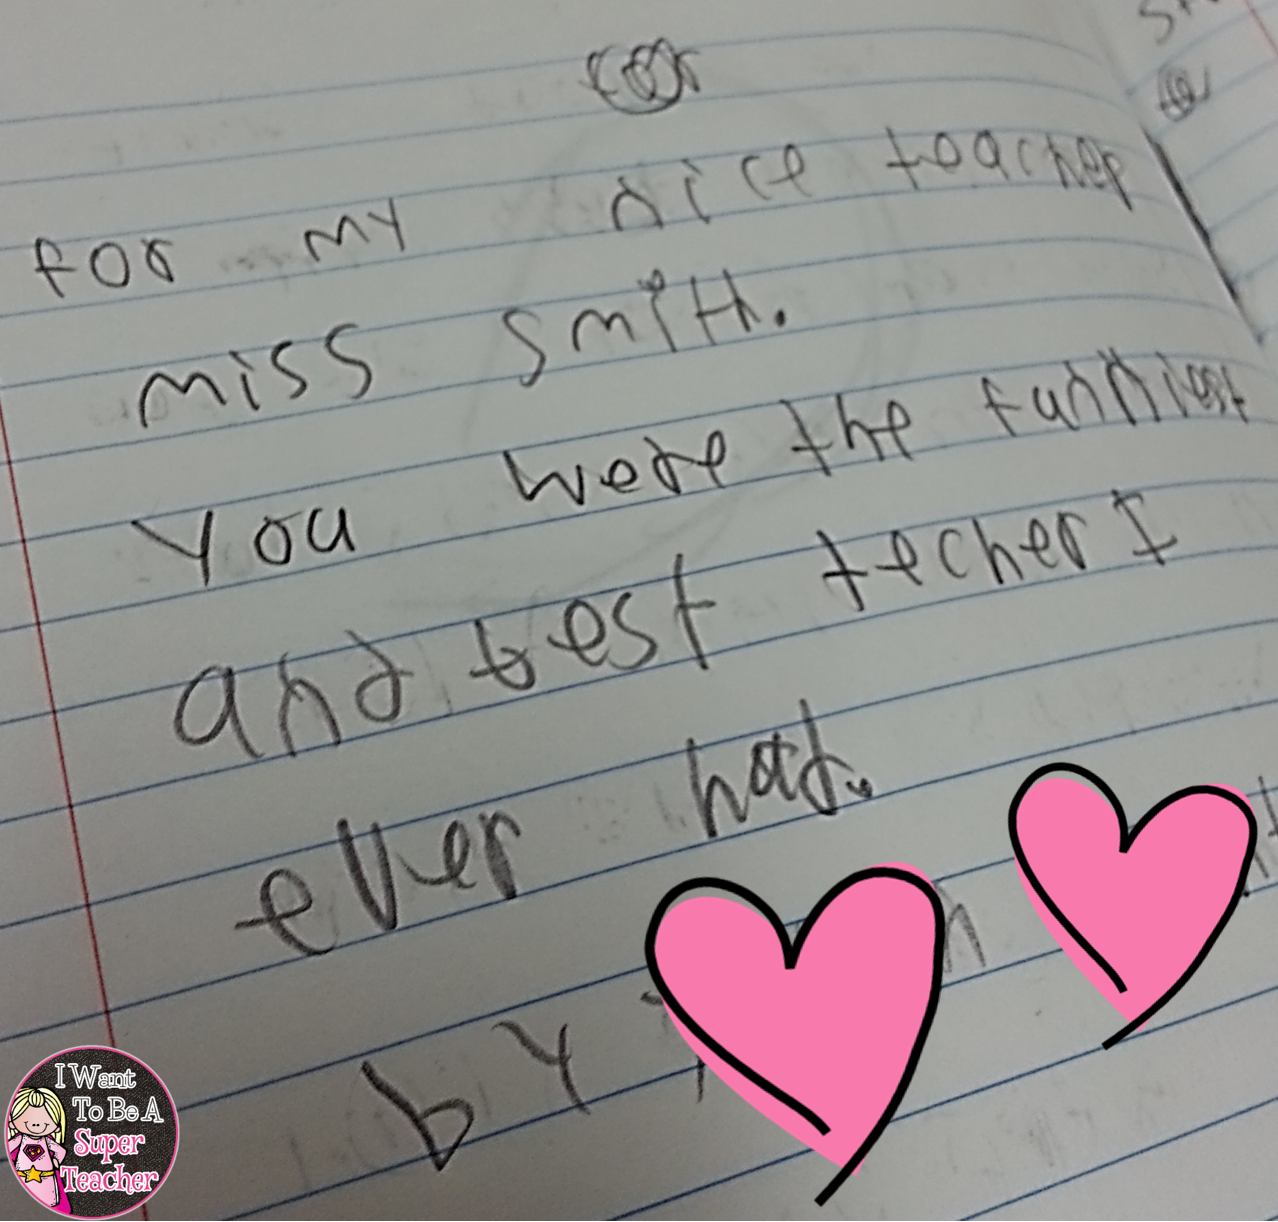 for my nice teacher
miss smith.
You were the funniest
and best techer I
ever had.
by
I Want
To Be A
Super
Teacher